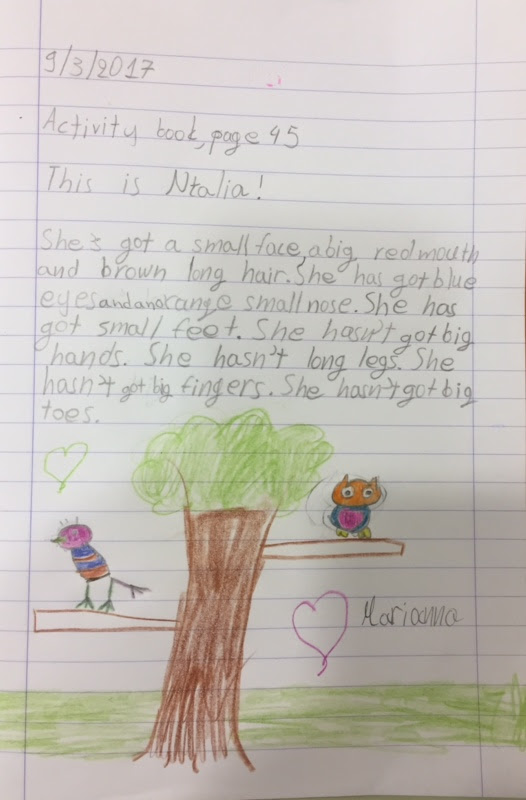 9/3/2017
Activity book, page 45
This is Ntalia!
She's got a small face, a big red mouth
and brown long hair. She has got blue
eyes and an orange small nose. She has
got small feet. She hasn't got big
hands. She hasn't long legs. She
hasn't got big fingers. She hasn't got big
toes.
Marianna